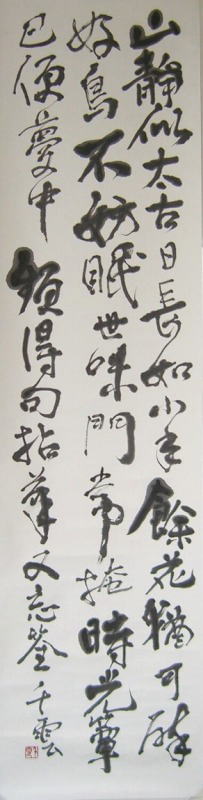 山靜似太古日長如小年餘花猶可醉
好鳥不妨眠世味門常掩時光簟
已便夢中頻得句拈筆又忘筌千雲